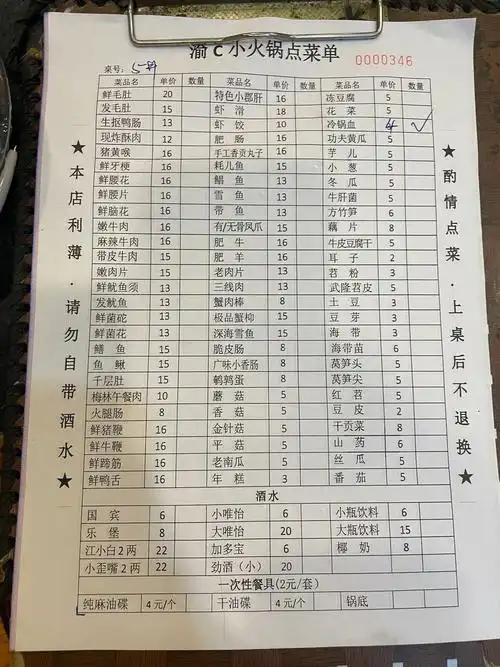 渝C小火锅点菜单
0000346
桌号：
菜品名 单价 数量 菜品名 单价 数量 菜品名 单价 数量
鲜毛肚 20 特色小郡肝 16 冻豆腐 5
发毛肚 15 虾滑 18 花菜 5
生抠鸭肠 13 虾饺 10 冷锅血 4 ✓
现炸酥肉 12 肥肠 16 功夫黄瓜 5
猪黄喉 16 手工香贡丸子 16 芋儿 5
鲜牙梗 16 耗儿鱼 15 小葱 5
鲜腰花 16 鲳鱼 13 冬瓜 5
鲜腰片 16 雪鱼 13 牛肝菌 5
鲜脑花 16 带鱼 13 方竹笋 6
嫩牛肉 16 有/无骨凤爪 15 藕片 8
麻辣牛肉 16 肥牛 16 牛皮豆腐干 5
带皮牛肉 15 肥羊 16 耳子 2
嫩肉片 15 老肉片 13 苕粉 3
鲜鱿鱼须 13 三线肉 13 武隆苕皮 5
发鱿鱼 13 蟹肉棒 8 土豆 3
鲜菌砣 15 极品蟹柳 15 豆芽 3
鲜菌花 13 深海雪鱼 15 海带 3
鳝鱼 15 脆皮肠 8 海带苗 6
鱼鳅 15 广味小香肠 8 莴笋头 5
千层肚 15 鹌鹑蛋 8 莴笋尖 5
梅林午餐肉 10 蘑菇 5 红苕 5
火腿肠 8 香菇 5 豆皮 2
鲜猪鞭 16 金针菇 5 干贡菜 8
鲜牛鞭 16 平菇 5 山药 6
鲜蹄筋 16 老南瓜 5 丝瓜 5
鲜鸭舌 16 年糕 3 番茄 5
酒水
国宾 6 小唯怡 6 小瓶饮料 6
乐堡 8 大唯怡 20 大瓶饮料 15
江小白2两 22 加多宝 6 椰奶 8
小歪嘴2两 22 劲酒（小） 20
一次性餐具(2元/套)
纯麻油碟 4元/个 干油碟 4元/个 锅底
★本店利薄·请勿自带酒水★
★酌情点菜·上桌后不退换★